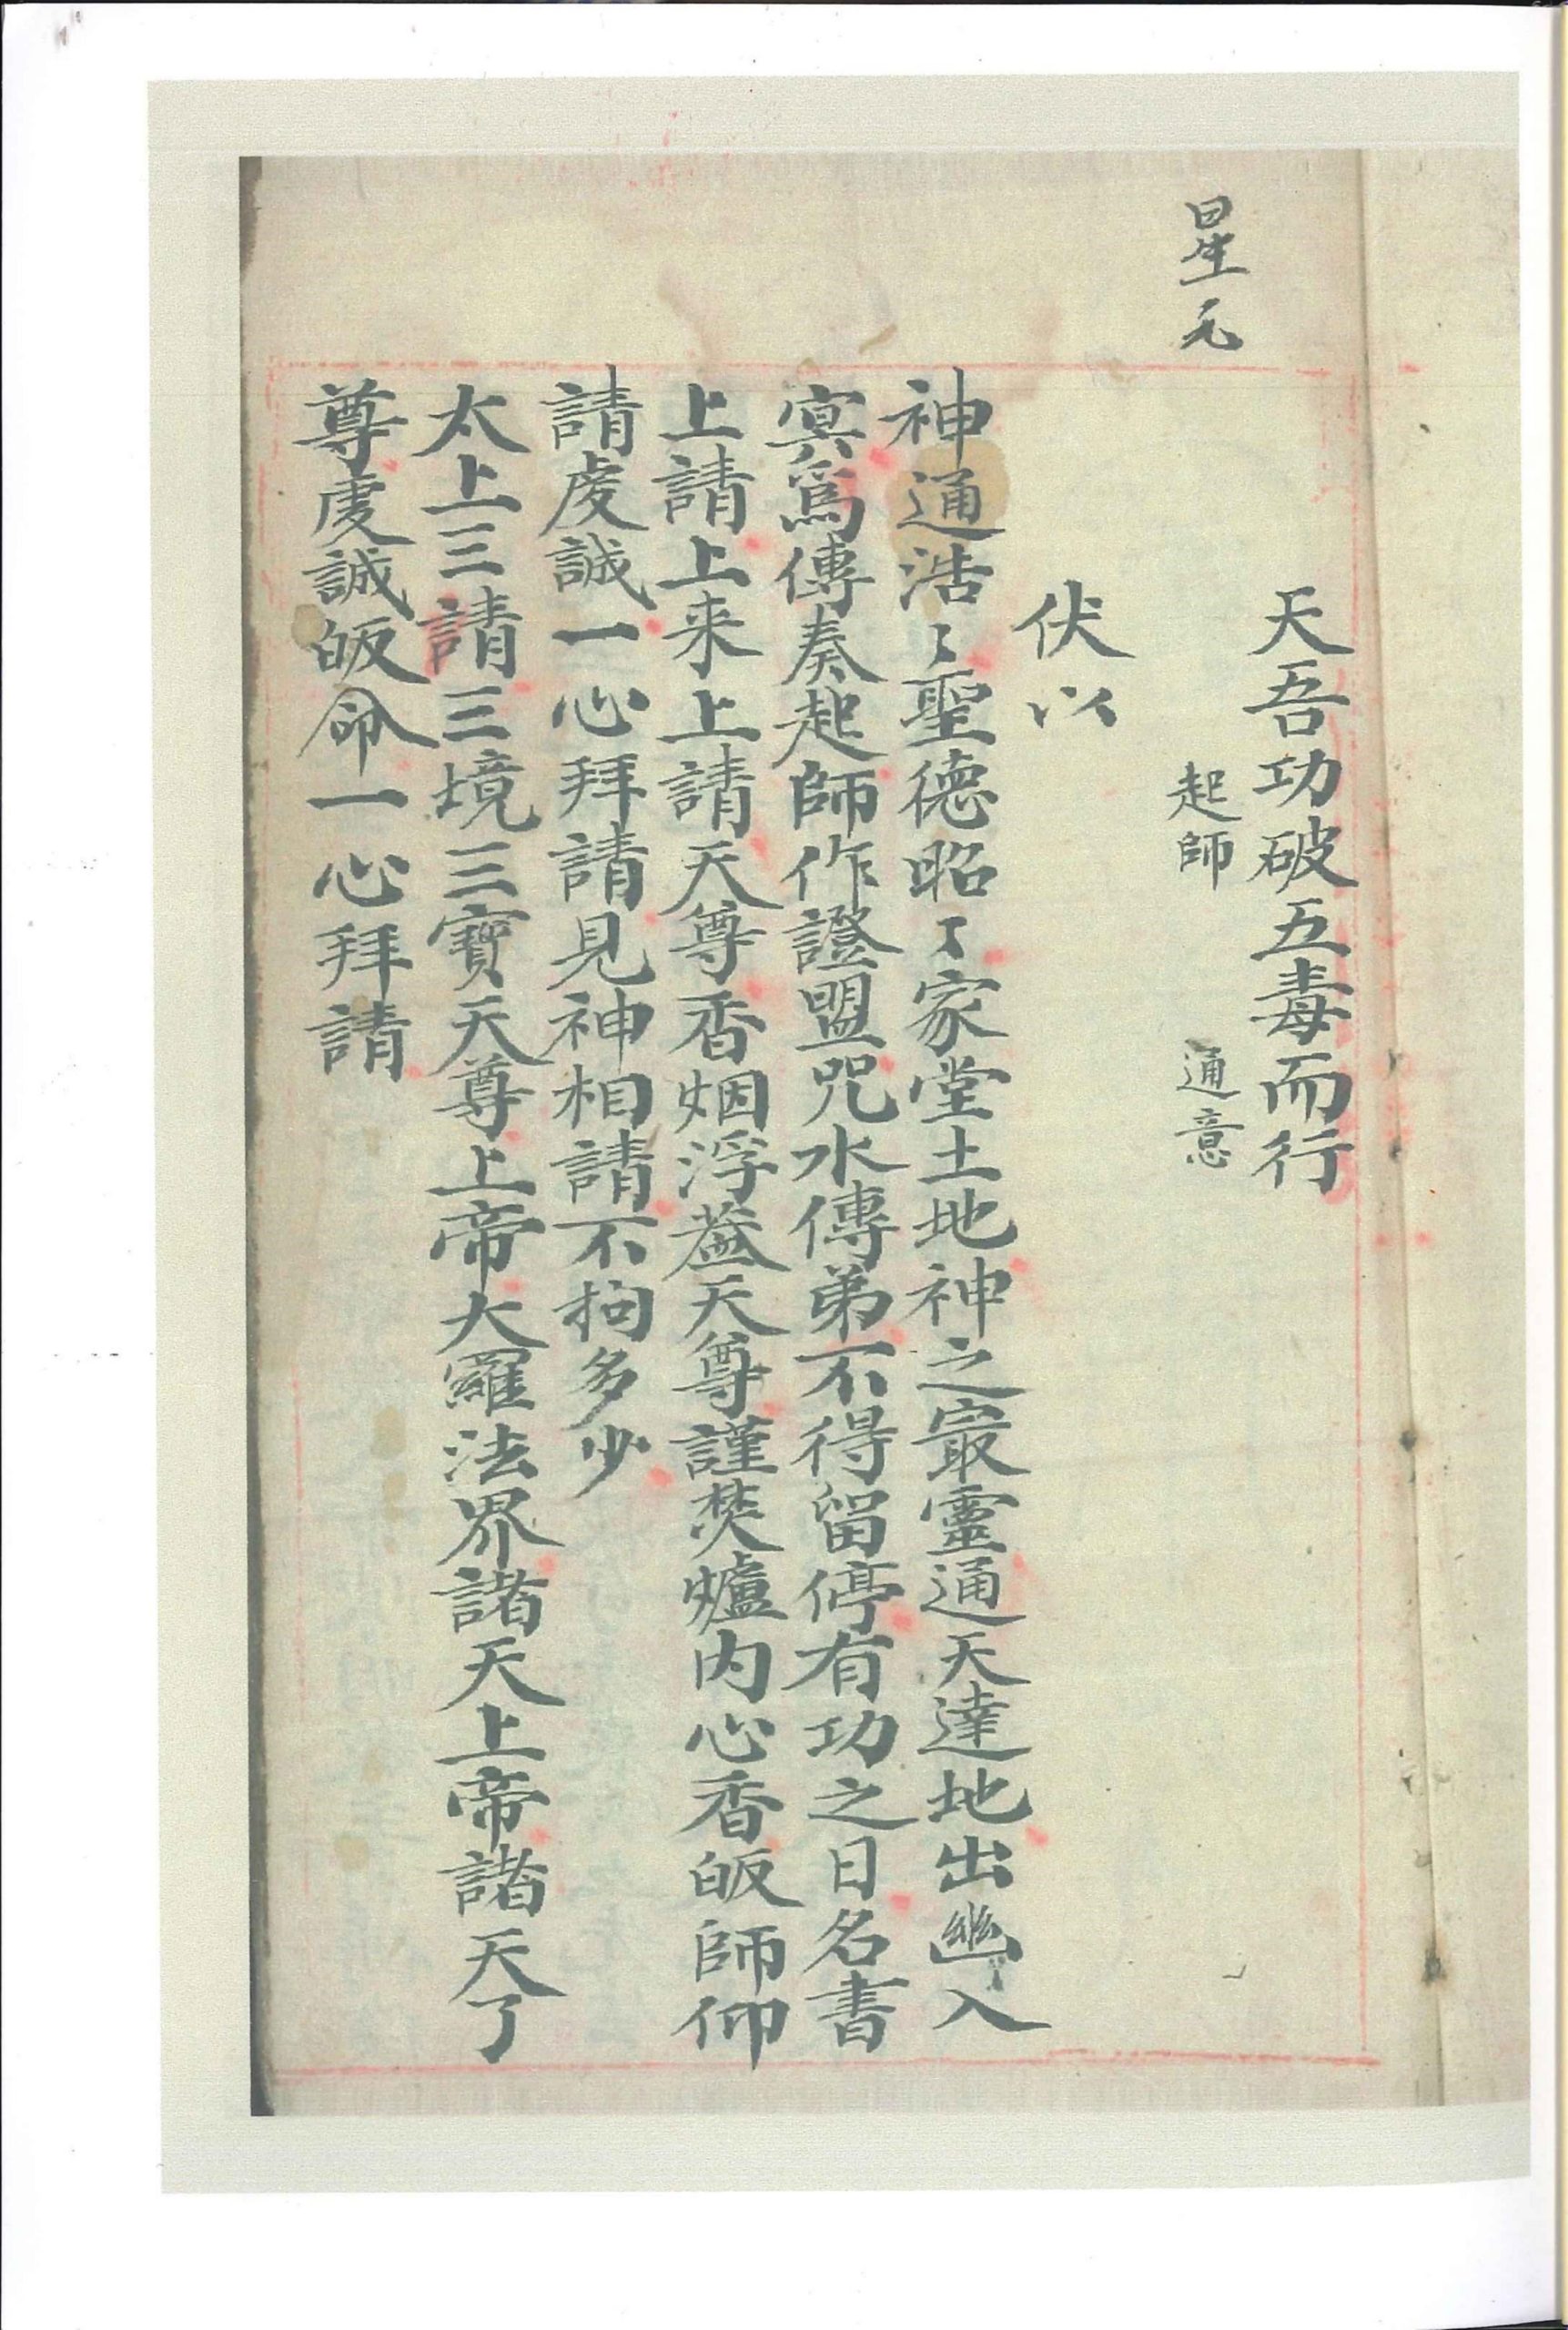 天吾功破五毒而行
星元
起師　通意
伏以
神通浩〻聖德昭〻家堂土地神之最靈通天達地出幽入
冥爲傳奏起師作證盟咒水傳弟不得留停有功之日名書
上請上来上請天尊香烟浮蓋天尊謹焚爐内心香皈師仰
請虔誠一心拜請見神相請不拘多少
太上三請三境三寶天尊上帝大羅法界諸天上帝諸天了
尊虔誠皈命一心拜請